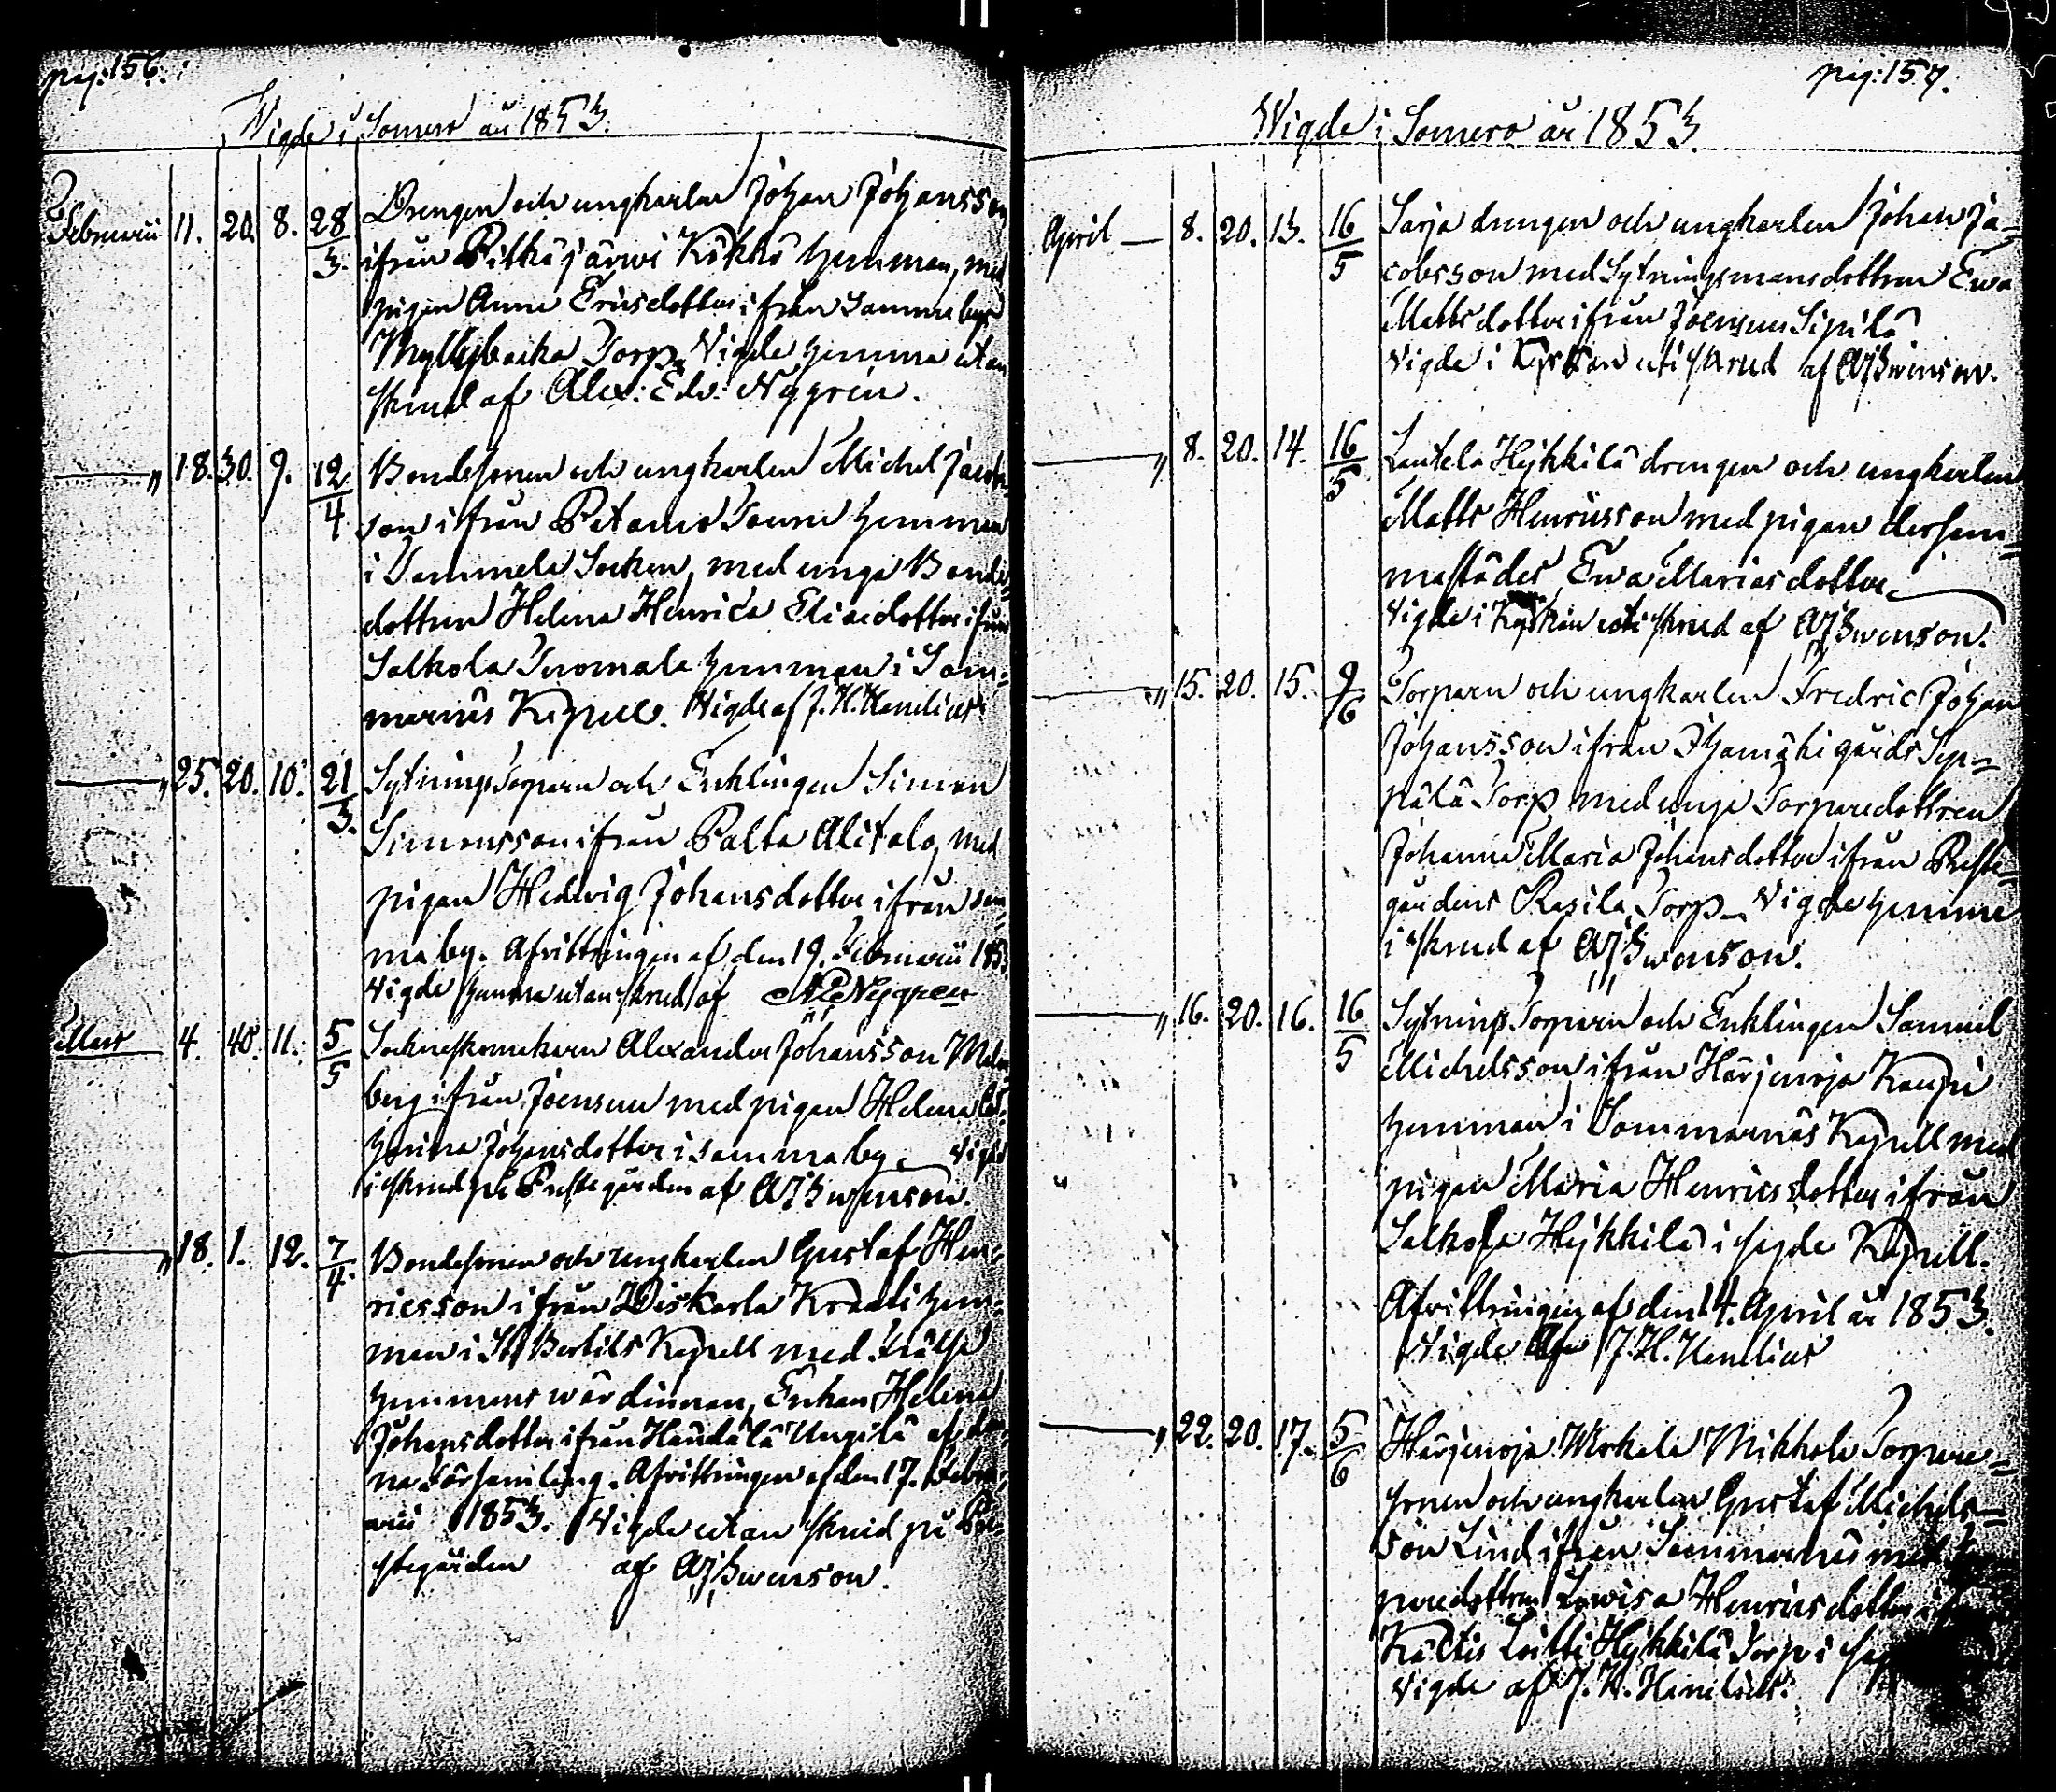 pag: 156.
Wigde i Somero år 1853.
Februarii 11. 20. 8. 28/3. Drengen och ungkarlen Johan Johansson
ifrån Pitkäjärwi Kökkö hemman, med
pigan Anna Ericsdotter ifrån samma by
Myllybacka Torp. Vigde hemma utan
skrud af Alex: Edv: Nygrén.
—„ 18. 30. 9. 12/4 Bondesonen och ungkarlen Michel Jacobs-
son ifrån Patamo hemman
i Tammela Socken, med unga Bonde-
dottren Helena Henrica Eliaedotter ifrån
Salkola Tuomala hemman i Som-
mernäs Kapell. Vigde af J. H. Henelius
—„ 25. 20. 10. 21/3. Sytnings Torparn och Enklingen Simon
Simonsson ifrån Palta Alitalo, med
pigan Hedvig Johansdotter ifrån sam-
ma by. Afvittringen af den 19. Februarii 1853
Vigde hemma utan skrud af Nygren
Mars 4. 40. 11. 5/5 Sockneskomakaren Alexander Johansson
berg ifrån Joensuu med pigan Helena
Johansdotter i samma by. Vigde
i skrud på Prestegården af AJSwenson.
—„ 18. 1. 12. 7/4. Bondesonen och ungkarlen Gustaf Hen-
ricsson ifrån Diskarla Kraati hem-
man i St Bertils Kapell med Frälse
hemmans wärdinnan, Enkan Helena
Johansdotter ifrån Häntälä Ungila af den-
na Församling. Afvittringen af den 17. Febru-
arii 1853. Vigde utan skrud på Pre-
stegården af AJSwenson.
pag: 157.
Wigde i Somero år 1853
April — 8. 20. 13. 16/5 Sarja drengen och ungkarlen Johan Ja-
cobsson med Sytningsmansdottren Ewa
Mattsdotter ifrån Joensuu Sipilä
Vigde i Kyrkan uti skrud af AJSwenson.
—„ 8. 20. 14. 16/5 Lautela Hykkilä drengen och ungkarlen
Matts Henricsson med pigan dersam-
mastädes Ewa Mariasdotter
Vigde i Kyrkan uti skrud af AJSwenson.
—„ 15. 20. 15. 9/6 Torparn och ungkarlen Fredric Johan
Johansson ifrån Ihamäki gårds Sep-
pälä Torp med unga Torparedottren
Johanna Maria Johansdotter ifrån Preste-
gårdens Rasila Torp. Vigde hemma
i skrud af AJSwenson.
—„ 16. 20. 16. 16/5 Sytnings Torparn och Enklingen Samuel
Michelsson ifrån Härjenoja Kauppi
hemman i Sommarnäs Kapell med
pigan Maria Henricsdotter ifrån
Salkola Hykkilä i sagde Kapell.
Afvittringen af den 14. April år 1853.
Vigde af J. H. Henelius
—„ 22. 20. 17. 5/6 Härjenoja Wirkala Mikkola Torpare-
sonen och ungkarlen Gustaf Michels-
son Lind ifrån Sommarnäs med
paredottren Lowisa Henricsdotter
Kältis Hykkilä Torp i
Vigde af J. H. Henelius.